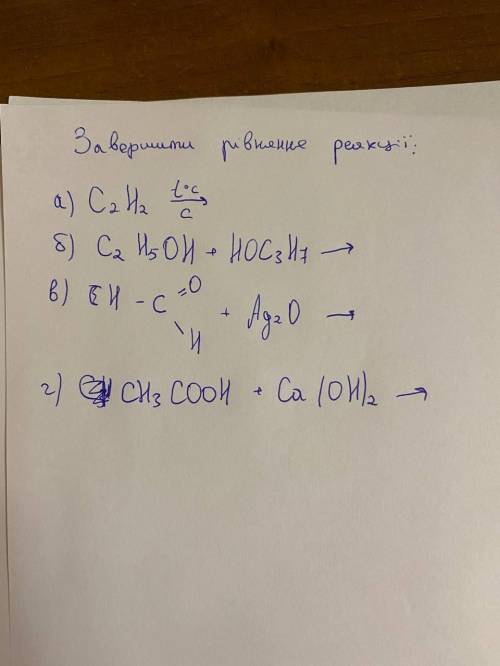 Завершити рівняння реакції:
а) C₂H₂ t°C / C →
б) C₂H₅OH + HOC₃H₇ →
в) CH - C =O \ H + Ag₂O →
г) CH₃COOH + Ca(OH)₂ →